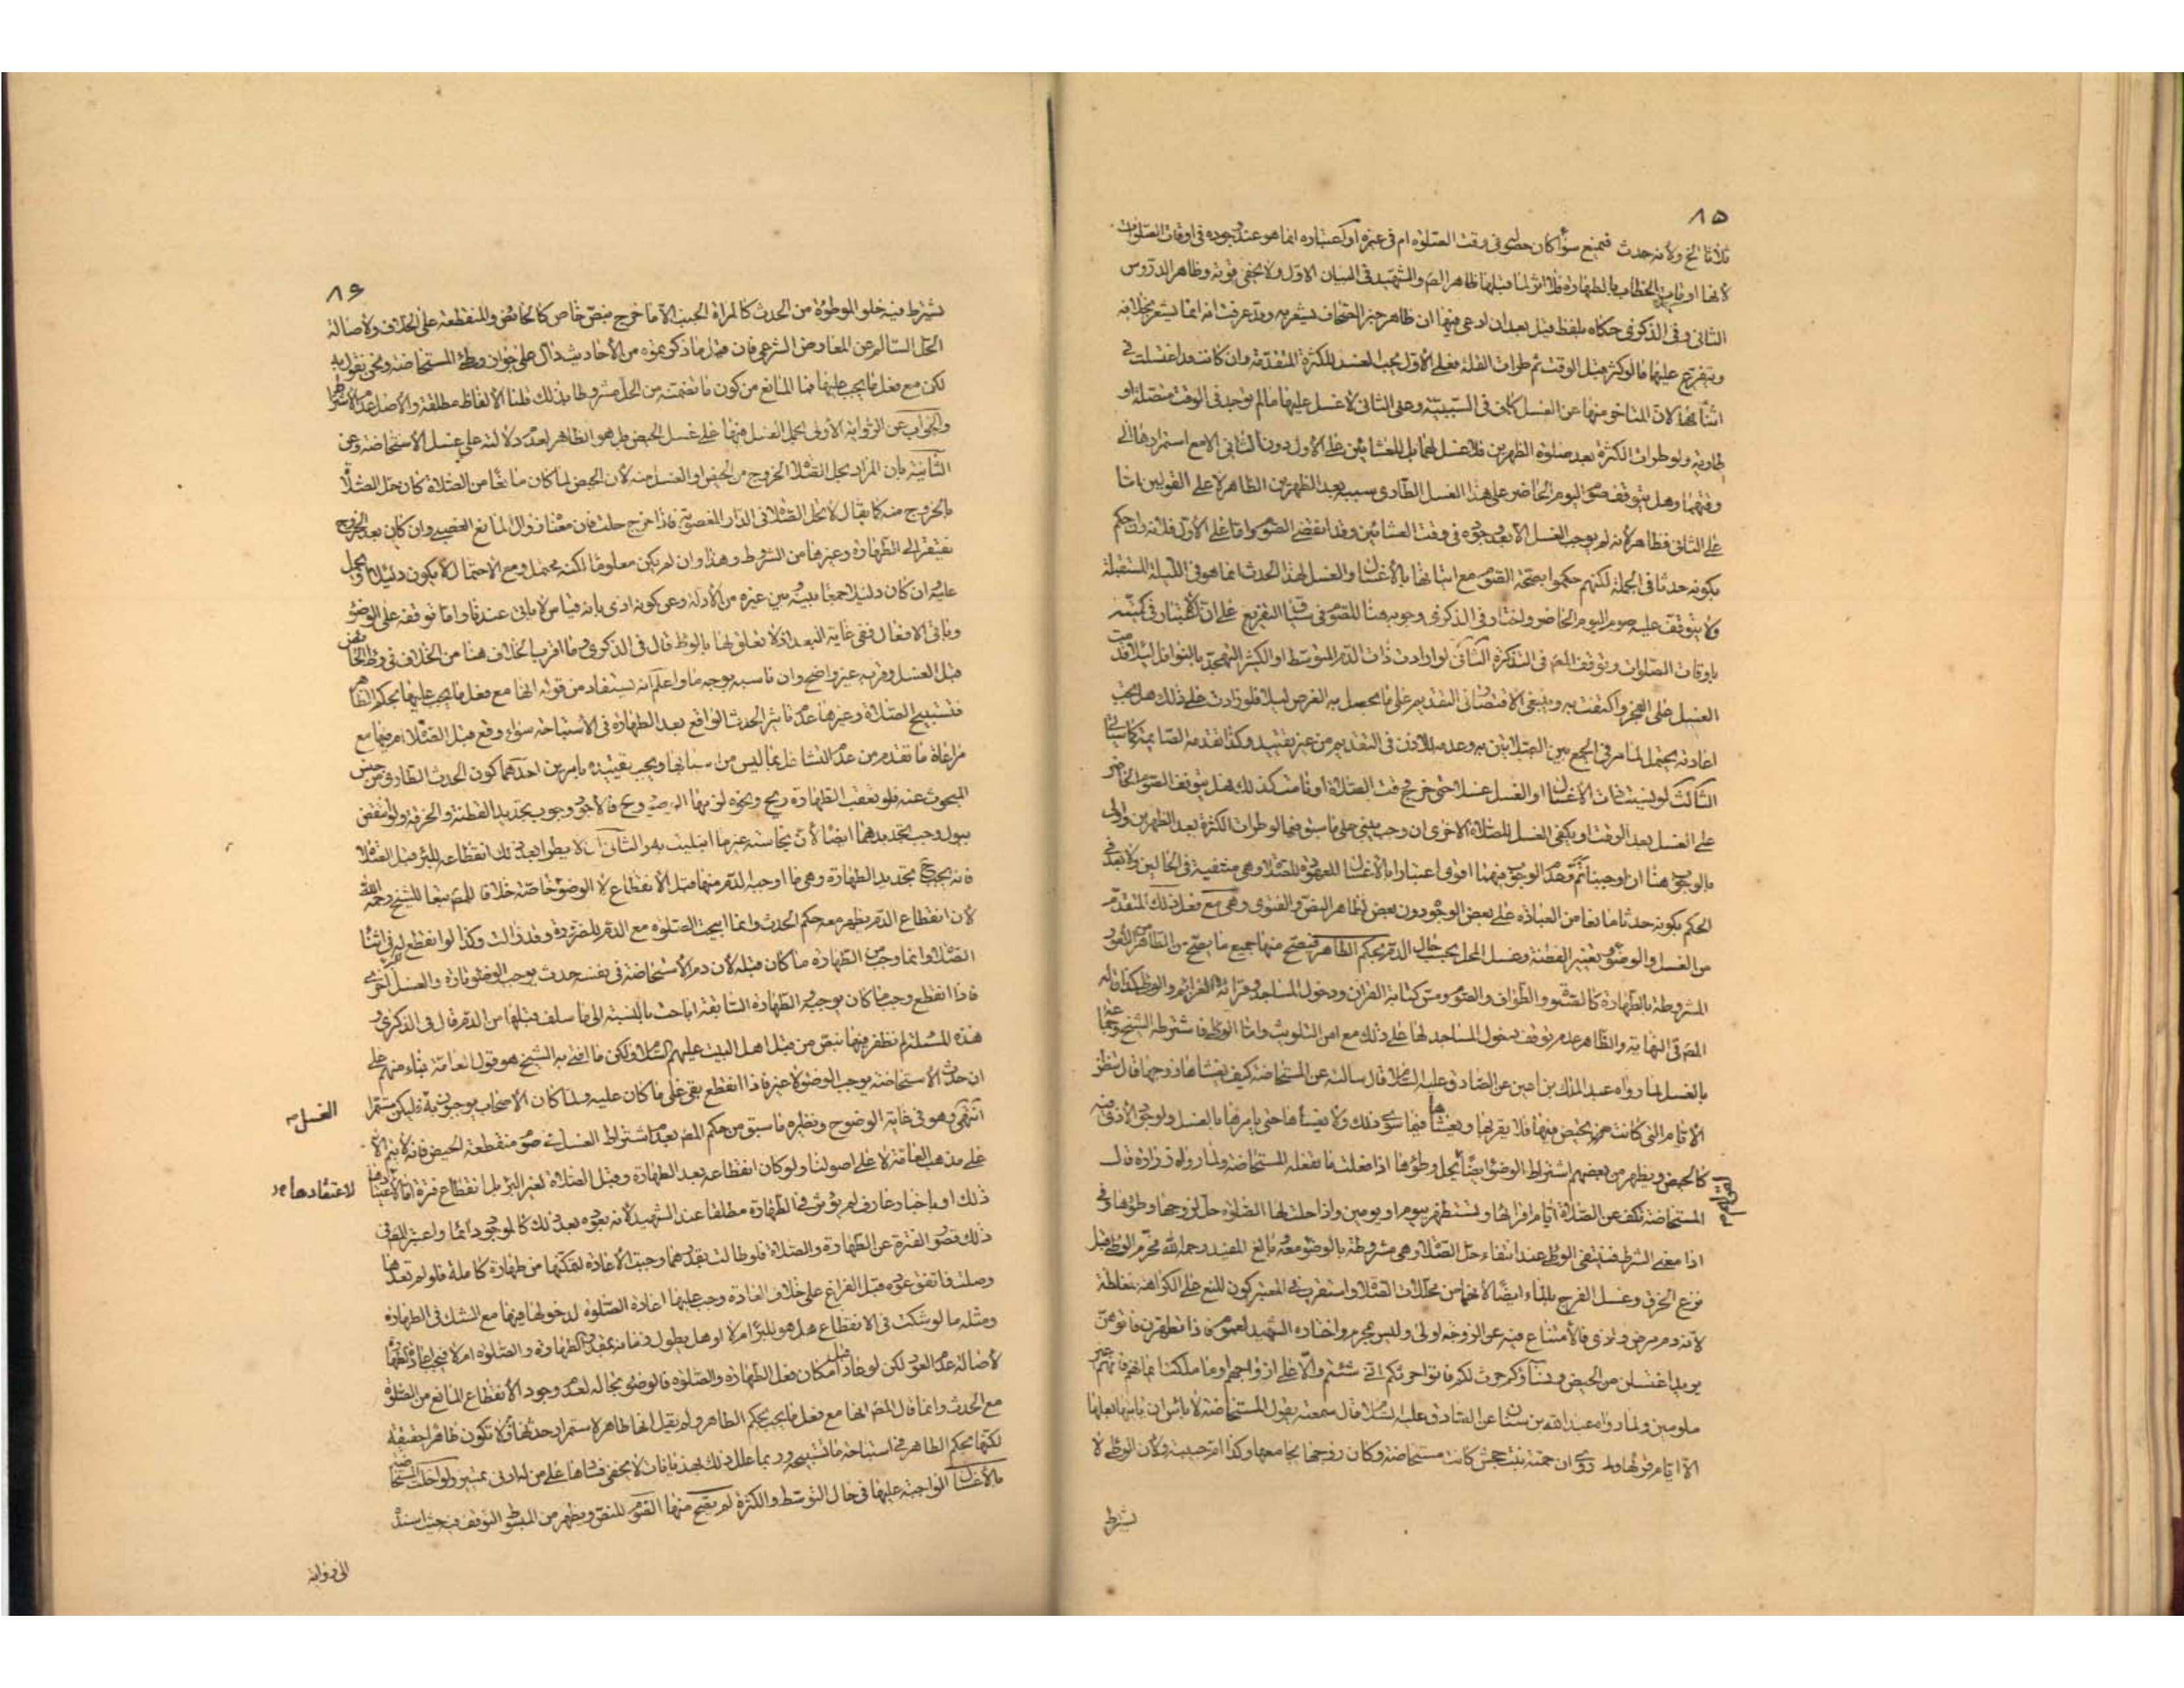 ٨٥
ثلاثا الخ ولأنه حدث فيمنع سواء كان حصوله فى وقت الصلوة ام فى غيره او اعتباره انما هو عند وجوده فى اوقات الصلوات
لانها اوقات الخطاب بالطهارة فلا اثر لما قبلها ظاهر المص والشهيد فى البيان الاول ولا يخفى قوته وظاهر الدروس
الثانى وفى الذكرى حكاه بلفظ قيل بعد ان ادعى فيها ان ظاهر خبر الصحاف يشعر به وقد عرفت انه انما يشعر بخلافه
ويتفرع عليهما ما لو كثر قبل الوقت ثم طرات القلة فعلى الاول يجب الغسل للكثرة المتقدمة وان كانت قد اغتسلت فى
اثنائها لان المتاخر منها عن الغسل كاف فى السببية وعلى الثانى لا غسل عليها ما لم يوجد فى الوقت متصلة او
طارية ولو طرات الكثرة بعد صلوة الظهرين فلا غسل لهما بل للعشائين على الاول دون الثانى الا مع استمرارها الى
وقتهما وهل يتوقف صوم اليوم الحاضر على هذا الغسل الطارى سببه بعد الظهرين الظاهر لا على القولين اما
على الثانى فظاهر لانه لم يوجب الغسل الا بعد وجوده فى وقت العشائين وقد انقضى الصوم واما على الاول فلانه وان حكم
بكونه حدثا فى الجملة لكنهم حكموا بصحة الصوم مع اتيانها بالاغسال والغسل لهذا الحدث انما هو فى الليلة المستقبلة
ولا يتوقف عليه صوم اليوم الحاضر واختار فى الذكرى وجوبه هنا للصوم فى سياق التفريع على ان الاعتبار فى كميته
باوقات الصلوات وتوقف المص فى التذكرة الثانى لو ارادت ذات الدم المتوسط او الكثير التهجد بالنوافل ليلا قدمت
الغسل على الفجر واكتفت به وينبغى الاقتصار فى التقديم على ما يحصل به الغرض ليلا فلو زادت على ذلك هل يجب
اعادته يحتمل لما مر فى الجمع بين الصلاتين به وعدمه للاذن فى التقديم من غير تقييد وكذا تقدمه الصائمة كما سياتى
الثالث لو نسيت ذات الاغسال او الغسل غسلا حتى خرج وقت الصلاة او قامت كذلك هل يتوقف الصوم الحاضر
على الغسل بعد الوقت او يكفى الغسل للصلاة الاخرى ان وجب يبنى على ما سبق فيما لو طرات الكثرة بعد الظهرين واولى
بالوجوب هنا ان اوجبنا ثم وعدم الوجوب فيهما اقوى اعتبارا بالاغسال المعهودة للصلاة وهى منتفية فى الحالين ولا بعد فى
الحكم بكونه حدثا مانعا من العبادة على بعض الوجوه دون بعض لظاهر النص والفتوى وهى مع فعل ذلك المتقدم
من الغسل والوضوء وتغيير القطنة وغسل المحل بحسب حال الدم بحكم الطاهر فيصح منها جميع ما يصح من الطاهر من الامور
المشروطة بالطهارة كالصلاة والطواف والصوم ومس كتابة القران ودخول المساجد وقرائة العزائم والوطى كذا قاله
المص فى النهاية والظاهر عدم توقف دخول المساجد لها على ذلك مع امن التلويث واما الوطى فاشترطه الشيخ وجماعة
بالغسل لما رواه عبد الملك بن اعين عن الصادق عليه السلام قال سالته عن المستحاضة كيف يغشاها زوجها قال تنظر
الايام التى كانت تحيض فيها فلا يقربها ويغشاها فيما سوى ذلك ولا يغشاها حتى يامرها بالغسل ولوجود الاذى فيه
كالحيض ويظهر من بعضهم اشتراط الوضوء ايضا يحل وطؤها اذا فعلت ما تفعله المستحاضة ولما رواه زرارة قال
المستحاضة تكف عن الصلاة ايام اقرائها وتستظهر بيوم او يومين واذا حلت لها الصلوة حل لزوجها وطؤها وفى
اذا معنى الشرط فينتفى الوطى عند انتفاء حل الصلاة وهى مشروطة بالوضوء معه وبالغ المفيد رحمه الله فحرم الوطى قبل
نزع الخرق وغسل الفرج بالماء ايضا لانهما من محللات الصلاة واستقرب فى المعتبر كون المنع على الكراهة مغلظة
لانه دم مرض واذى فالامتناع فيه عن الزوجة اولى وليس بمحرم واختاره الشهيد لعموم فاذا تطهرن فاتوهن
يريد اغتسلن من الحيض ونساؤكم حرث لكم فاتوا حرثكم انى شئتم والا على ازواجهم او ما ملكت ايمانهم فانهم غير
ملومين ولما رواه عبد الله بن سنان عن الصادق عليه السلام قال سمعته يقول المستحاضة لا باس ان ياتيها بعلها
الا ايام قرئها وقد روى ان حمنة بنت جحش كانت مستحاضة وكان زوجها يجامعها وكذا ام حبيبة ولان الوطى لا
يشترط
٨٦
يشترط فيه خلو الموطوئة من الحدث كالمراة الجنب الا ما خرج بنص خاص كالحائض والمنقطعة على الخلاف ولاصالة
الحل السالم عن المعارض الشرعى فان قيل ما ذكرتموه من الاحاديث دال على جواز وطى المستحاضة ونحن نقول به
لكن مع فعل ما يجب عليها فما المانع من كون ما تضمنته من الحل مشروطا بذلك قلنا الالفاظ مطلقة والاصل عدم الاشتراط
والجواب عن الرواية الاولى بحمل الغسل فيها على غسل الحيض بل هو الظاهر لعدم دلالته على غسل الاستحاضة وعن
الثانية بان المراد بحل الصلاة الخروج من الحيض او الغسل منه لان الحيض لما كان مانعا من الصلاة كان حل الصلاة
بالخروج منه كما يقال لا تحل الصلاة فى الدار المغصوبة فاذا خرج حلت فان معناه زوال المانع الغصبى وان كان بعد الخروج
تفتقر الى الطهارة وغيرها من الشروط وهذا وان لم يكن معلوما لكنه محتمل ومع الاحتمال لا يكون دليلا ويحمل
عليه ان كان دليلا جمعا بينه وبين غيره من الادلة وعن كونه اذى بانه قياس لا ياتى عندنا واما توقفه على الوضوء
وباقى الافعال ففى غاية البعد اذ لا تعلق لها بالوطى قال فى الذكرى وما اقرب الخلاف هنا من الخلاف فى وطى الحائض
قبل الغسل وقربه غير واضح وان ناسبه بوجه ما واعلم انه يستفاد من قوله انها مع فعل ما يجب عليها بحكم الطاهر
فتستبيح الصلاة وغيرها عدم تاثير الحدث الواقع بعد الطهارة فى الاستباحة سواء وقع قبل الصلاة ام فيها مع
مراعاة ما تقدم من عدم التشاغل بما ليس من اسبابها ويجب تقييده بامرين احدهما كون الحدث الطارى من جنس
المبحوث عنه فلو تعقب الطهارة ريح ونحوه وح فالاجود وجوب تجديد القطنة والخرقة ولو تعقبت
ببول وجب تجديدهما ايضا لان نجاسته غير ما ابتليت به والثانى ان لا يطرا بعد ذلك انقطاعه للبرء قبل الصلاة
فانه يجب ح تجديد الطهارة وهى ما اوجبه الدم منها قبل الانقطاع لا الوضوء خاصة خلافا للمص تبعا للشيخ رحمه الله
لان انقطاع الدم يظهر معه حكم الحدث وانما ابيحت الصلوة مع الدم للضرورة وقد زالت وكذا لو انقطع للبرء فى اثناء
الصلاة وانما وجب من الطهارة ما كان قبله لان دم الاستحاضة فى نفسه حدث يوجب الوضوء تارة والغسل اخرى
فاذا انقطع وجب ما كان يوجبه والطهارة السابقة اباحت بالنسبة الى ما سلف قبلها من الدم قال فى الذكرى و
هذه المسئلة لم نظفر فيها بنص من قبل اهل البيت عليهم السلام ولكن ما افتى به الشيخ هو قول العامة بناء منهم على
ان حدث الاستحاضة يوجب الوضوء لا غير فاذا انقطع بقى على ما كان عليه ولما كان الاصحاب يوجبون به فليكن مستمرا
الغسل
انتهى وهو فى غاية الوضوح ونظيره ما سبق من حكم المص بعدم اشتراط الغسل فى صوم منقطعة الحيض فانه لا يتم الا
على مذهب العامة لا على اصولنا ولو كان انقطاعه بعد الطهارة وقبل الصلاة لغير البرء بل انقطاع فترة اما لاعتيادها
لاعتيادها
ذلك او باخبار عارف لم يؤثر فى الطهارة مطلقا عند الشهيد لانه بعوده بعد ذلك كالموجود دائما واعتبر المص فى
ذلك قصور الفترة عن الطهارة والصلاة فلو طالت بقدرهما وجبت الاعادة لتمكنها من طهارة كاملة فلو لم تعدها
وصلت فاتفق عوده قبل الفراغ على خلاف العادة وجب عليها اعادة الصلوة لدخولها فيها مع الشك فى الطهارة
ومثله ما لو شكت فى الانقطاع هل هو للبرء ام لا او هل يطول زمانه بمقدار الطهارة والصلوة ام لا فيجب اعادة الطهارة
لاصالة عدم العود لكن لو عاد قبل امكان فعل الطهارة والصلوة فالوضوء بحاله لعدم وجود الانقطاع المانع من الصلوة
مع الحدث وانما قال المص انها مع فعل ما يجب بحكم الطاهر ولم يقل انها طاهرة لاستمرار حدثها فلا تكون طاهرا حقيقة
لكنها بحكم الطاهر فى استباحة ما تستبيحه وربما علل ذلك بان لا يخفى فسادها على من له ادنى تمييز ولو اخلت المستحاضة
بالاغسال الواجبة عليها فى حال التوسط والكثرة لم يصح منها الصوم للنص ويظهر من المبسوط التوقف فيه حيث اسنده
الى رواية